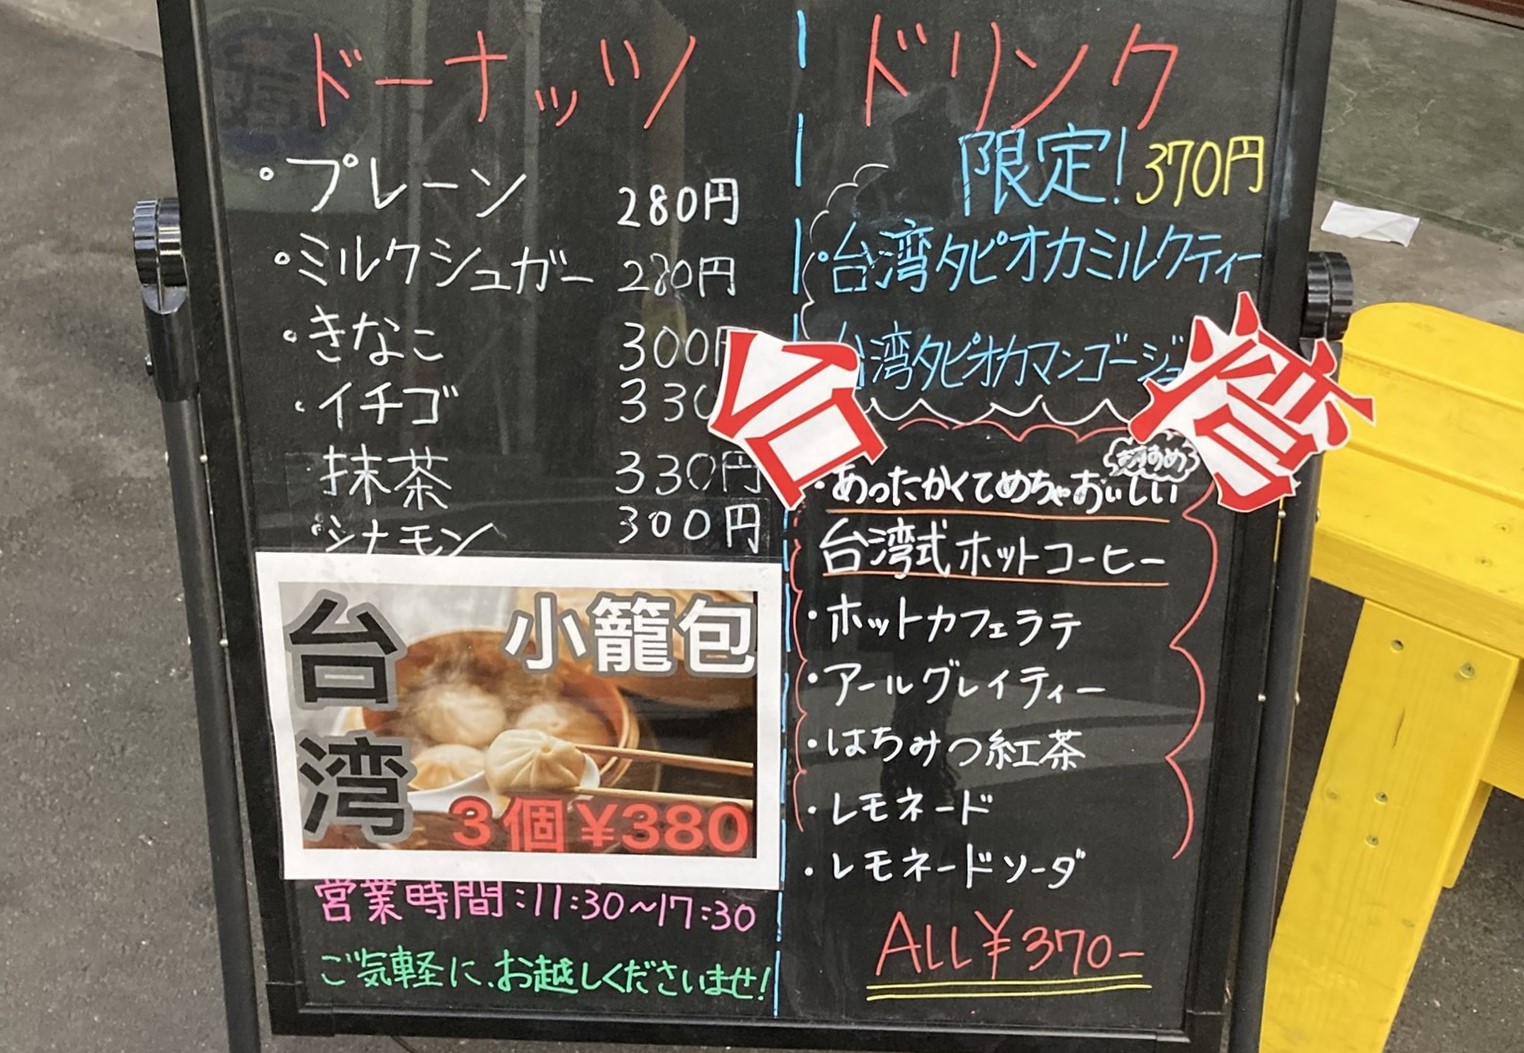 ドーナッツ
・プレーン 280円
・ミルクシュガー 280円
・きなこ 300円
・イチゴ 330
抹茶 330円
・シナモン 300円
台湾
小籠包
3個¥380
営業時間:11:30~17:30
ご気軽に、お越しくださいませ!
ドリンク
限定!370円
・台湾タピオカミルクティー
台湾タピオカマンゴージュ
台湾
おすすめ
・あったかくてめちゃおいしい
台湾式ホットコーヒー
・ホットカフェラテ
・アールグレイティー
・はちみつ紅茶
・レモネード
・レモネードソーダ
ALL¥370-